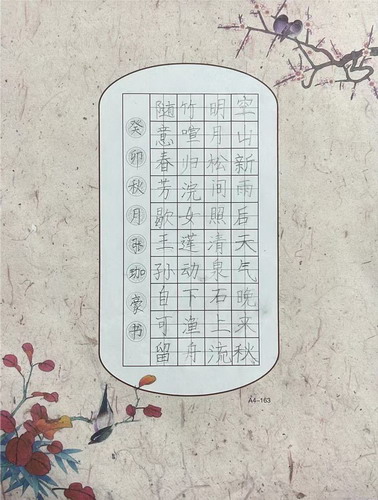 空山新雨后天气晚来秋
明月松间照清泉石上流
竹喧归浣女莲动下渔舟
随意春芳歇王孙自可留
癸卯秋月张珈豪书
A4-163